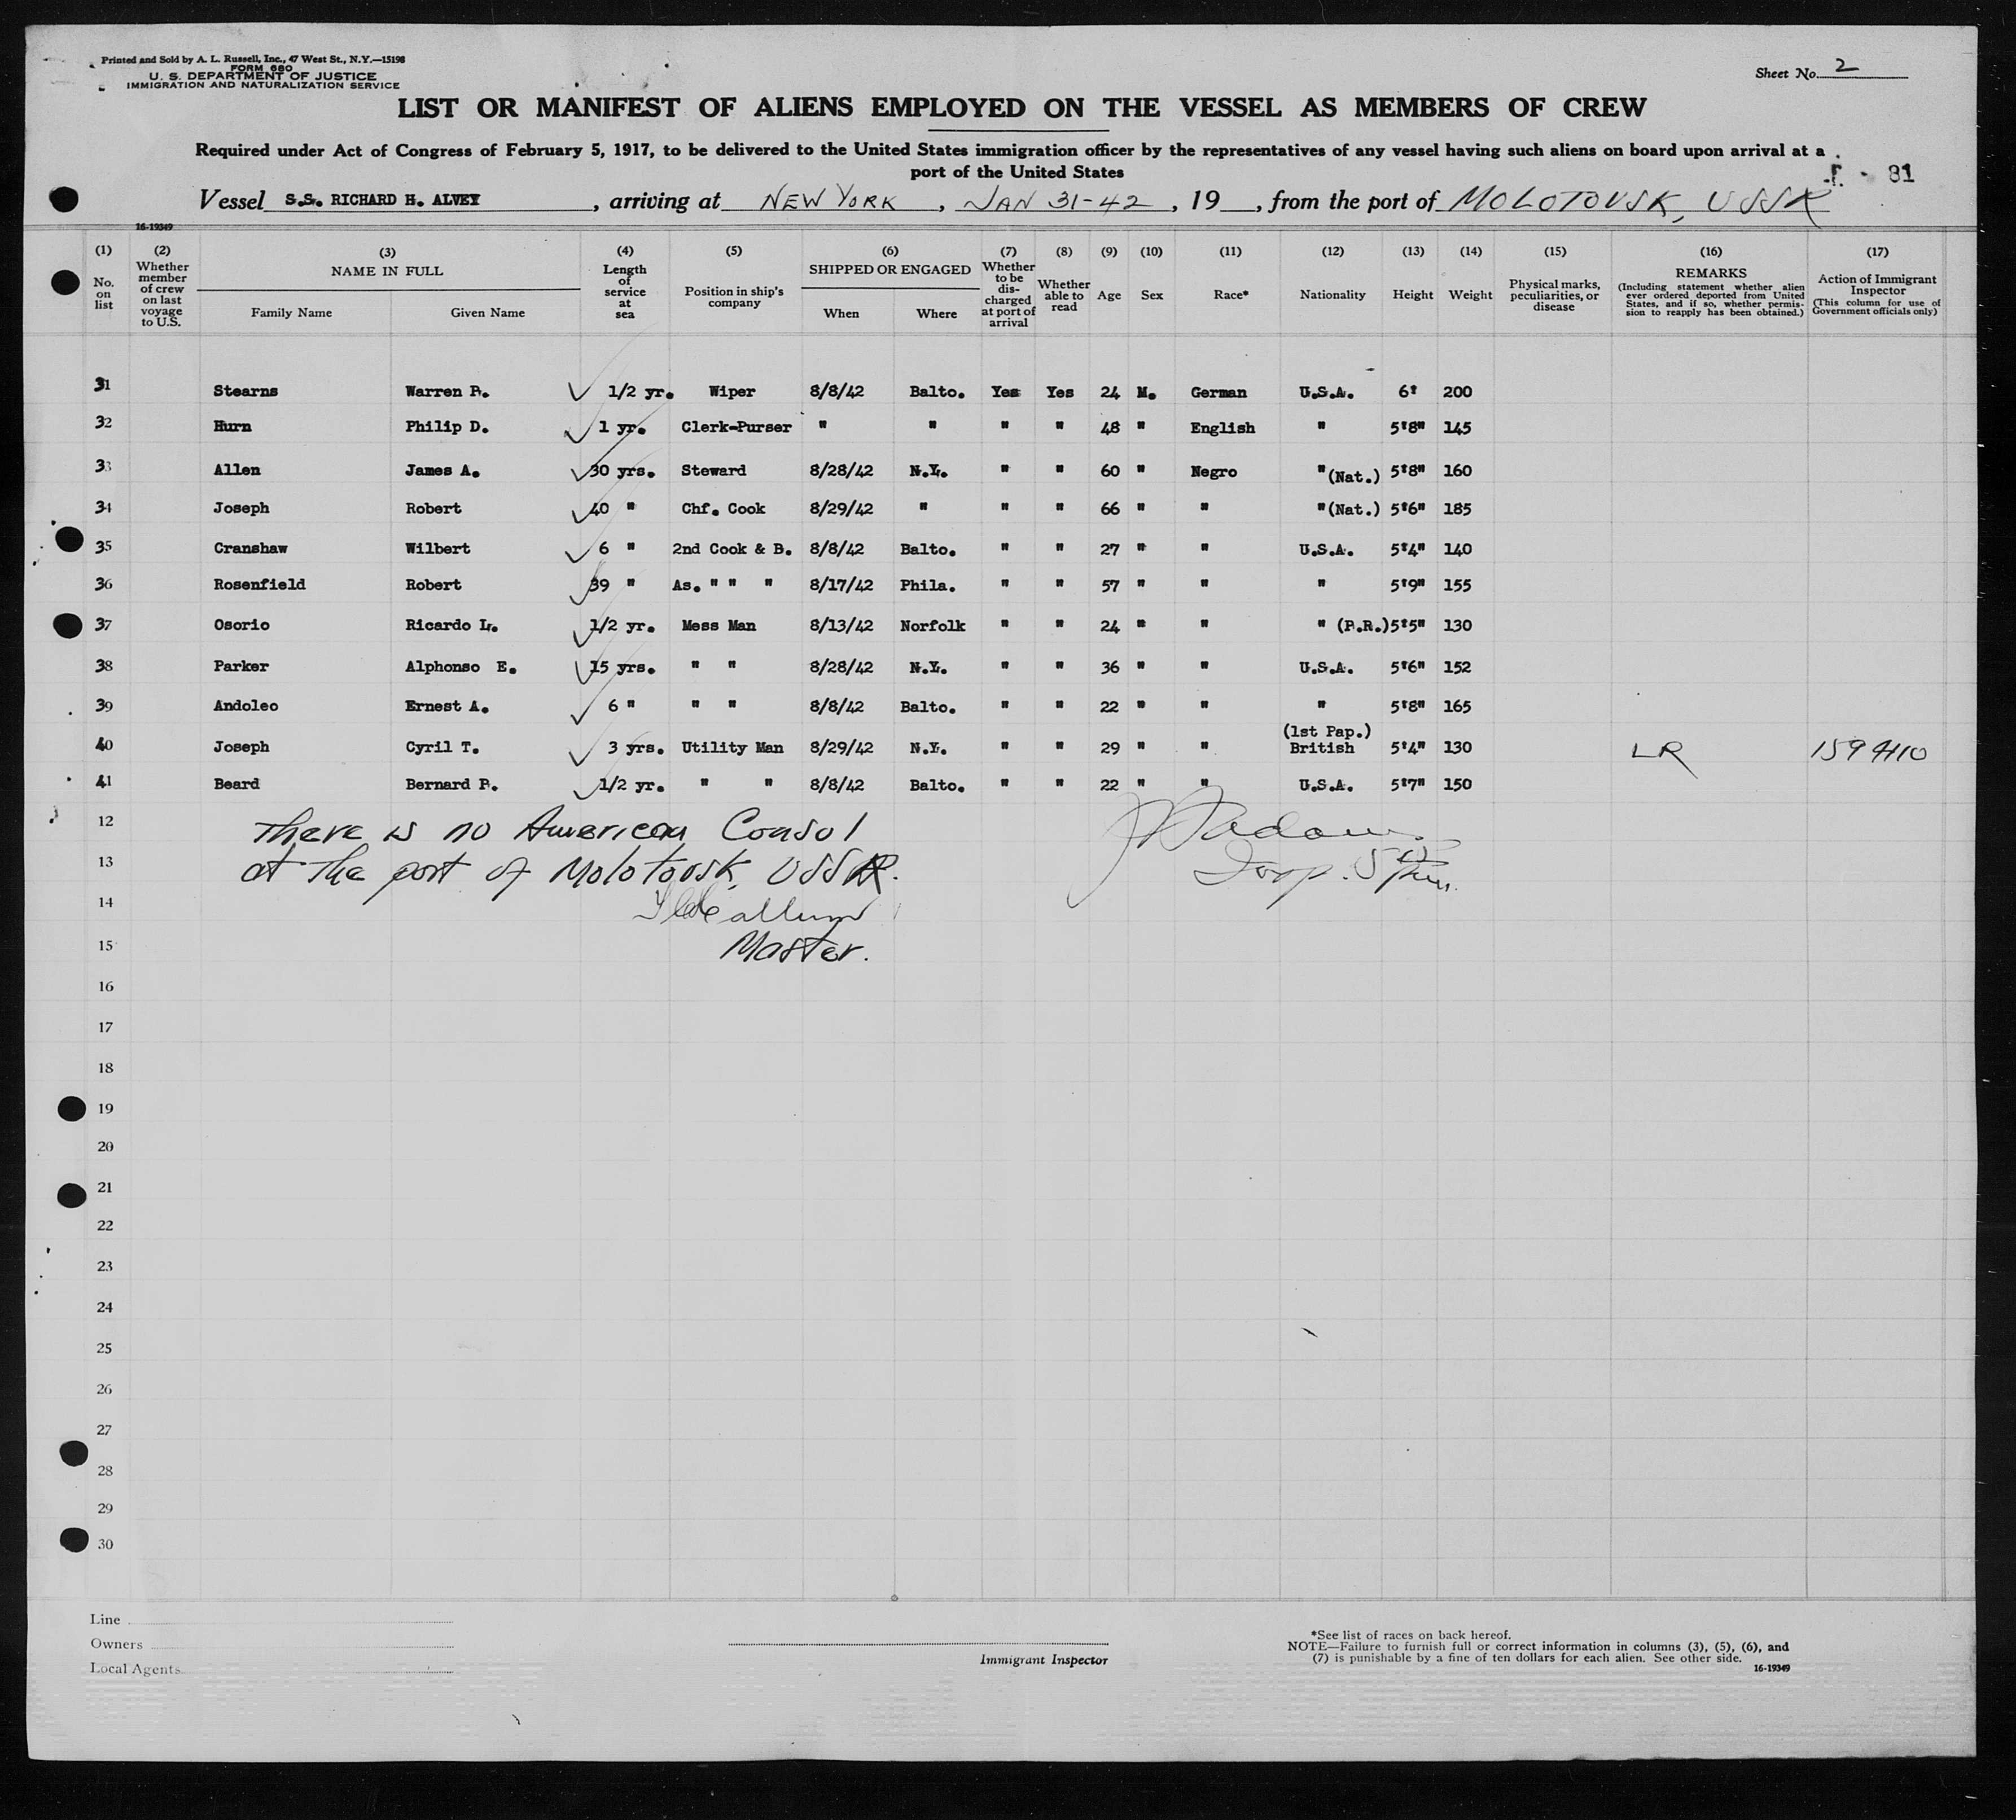 Printed and Sold by A. L. Russell, Inc., 47 West St., N.Y.—15198
FORM 680
U. S. DEPARTMENT OF JUSTICE
IMMIGRATION AND NATURALIZATION SERVICE
Sheet No. 2
LIST OR MANIFEST OF ALIENS EMPLOYED ON THE VESSEL AS MEMBERS OF CREW
Required under Act of Congress of February 5, 1917, to be delivered to the United States immigration officer by the representatives of any vessel having such aliens on board upon arrival at a
port of the United States
81
Vessel S.S. RICHARD H. ALVEY, arriving at NEW YORK, JAN 31-42, 19 , from the port of MOLOTOVSK, USSR
16-19349
(1) No. on list
(2) Whether member of crew on last voyage to U.S.
(3) NAME IN FULL Family Name Given Name
(4) Length of service at sea
(5) Position in ship's company
(6) SHIPPED OR ENGAGED When Where
(7) Whether to be discharged at port of arrival
(8) Whether able to read
(9) Age
(10) Sex
(11) Race*
(12) Nationality
(13) Height
(14) Weight
(15) Physical marks, peculiarities, or disease
(16) REMARKS (Including statement whether alien ever ordered deported from United States, and if so, whether permission to reapply has been obtained.)
(17) Action of Immigrant Inspector (This column for use of Government officials only)
31 Stearns Warren R. 1/2 yr. Wiper 8/8/42 Balto. Yes Yes 24 M. German U.S.A. 6' 200
32 Hurn Philip D. 1 yr. Clerk-Purser " " " " 48 " English " 5'8" 145
33 Allen James A. 30 yrs. Steward 8/28/42 N.Y. " " 60 " Negro " (Nat.) 5'8" 160
34 Joseph Robert 40 " Chf. Cook 8/29/42 " " " 66 " " " (Nat.) 5'6" 185
35 Cranshaw Wilbert 6 " 2nd Cook & B. 8/8/42 Balto. " " 27 " " U.S.A. 5'4" 140
36 Rosenfield Robert 39 " As. " " " 8/17/42 Phila. " " 57 " " " 5'9" 155
37 Osorio Ricardo L. 1/2 yr. Mess Man 8/13/42 Norfolk " " 24 " " " (P.R.) 5'5" 130
38 Parker Alphonso E. 15 yrs. " " 8/28/42 N.Y. " " 36 " " U.S.A. 5'6" 152
39 Andoleo Ernest A. 6 " " " 8/8/42 Balto. " " 22 " " " 5'8" 165
40 Joseph Cyril T. 3 yrs. Utility Man 8/29/42 N.Y. " " 29 " " (1st Pap.) British 5'4" 130 LR
41 Beard Bernard P. 1/2 yr. " " 8/8/42 Balto. " " 22 " " U.S.A. 5'7" 150
12 There is no American Consol
13 at the port of Molotovsk, USSR.
14
15 Master.
16
17
18
19
20
21
22
23
24
25
26
27
28
29
30
Line
Owners
Local Agents
Immigrant Inspector
*See list of races on back hereof.
NOTE—Failure to furnish full or correct information in columns (3), (5), (6), and
(7) is punishable by a fine of ten dollars for each alien. See other side.
16-19349